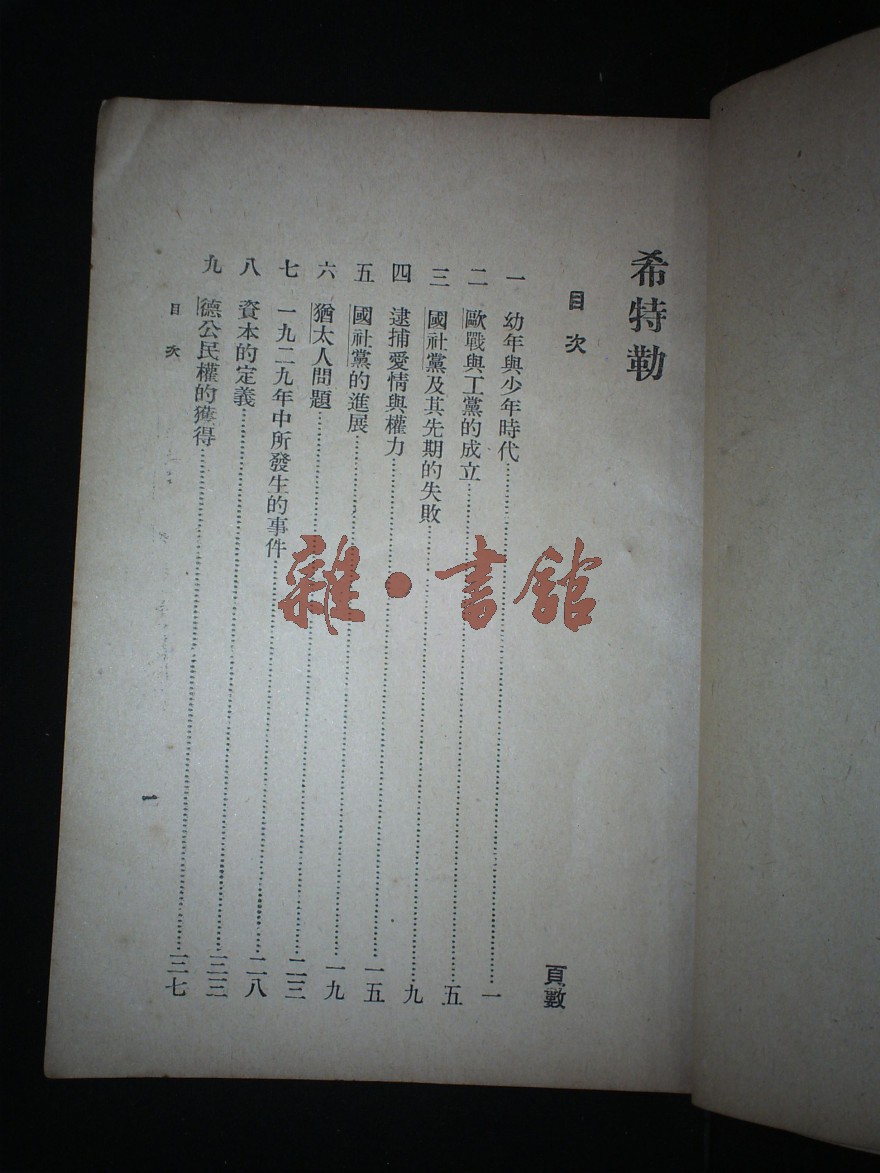 希特勒
目次
頁數
一 幼年與少年時代……一
二 歐戰與工黨的成立……五
三 國社黨及其先期的失敗……九
四 逮捕愛情與權力……一五
五 國社黨的進展……一九
六 猶太人問題……二三
七 一九二九年中所發生的事件……二八
八 資本的定義……三三
九 德公民權的獲得……三七
目次
一
雜·書館